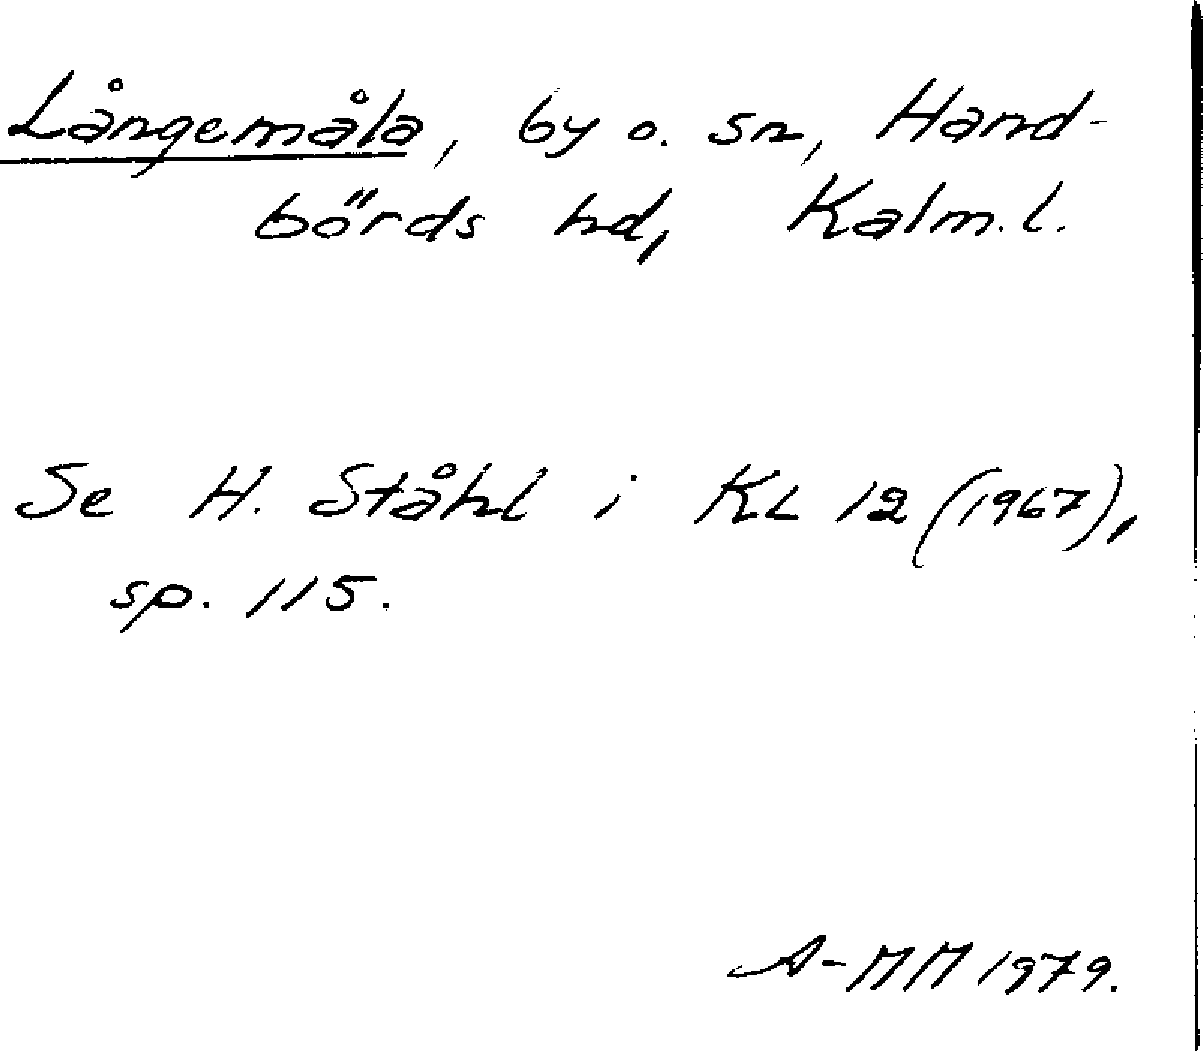 Långemåla, by o. sn, Hand-
börds hd, Kalm. l.
Se H. Ståhl i KL 12 (1967),
sp. 115.
A-MM 1979.